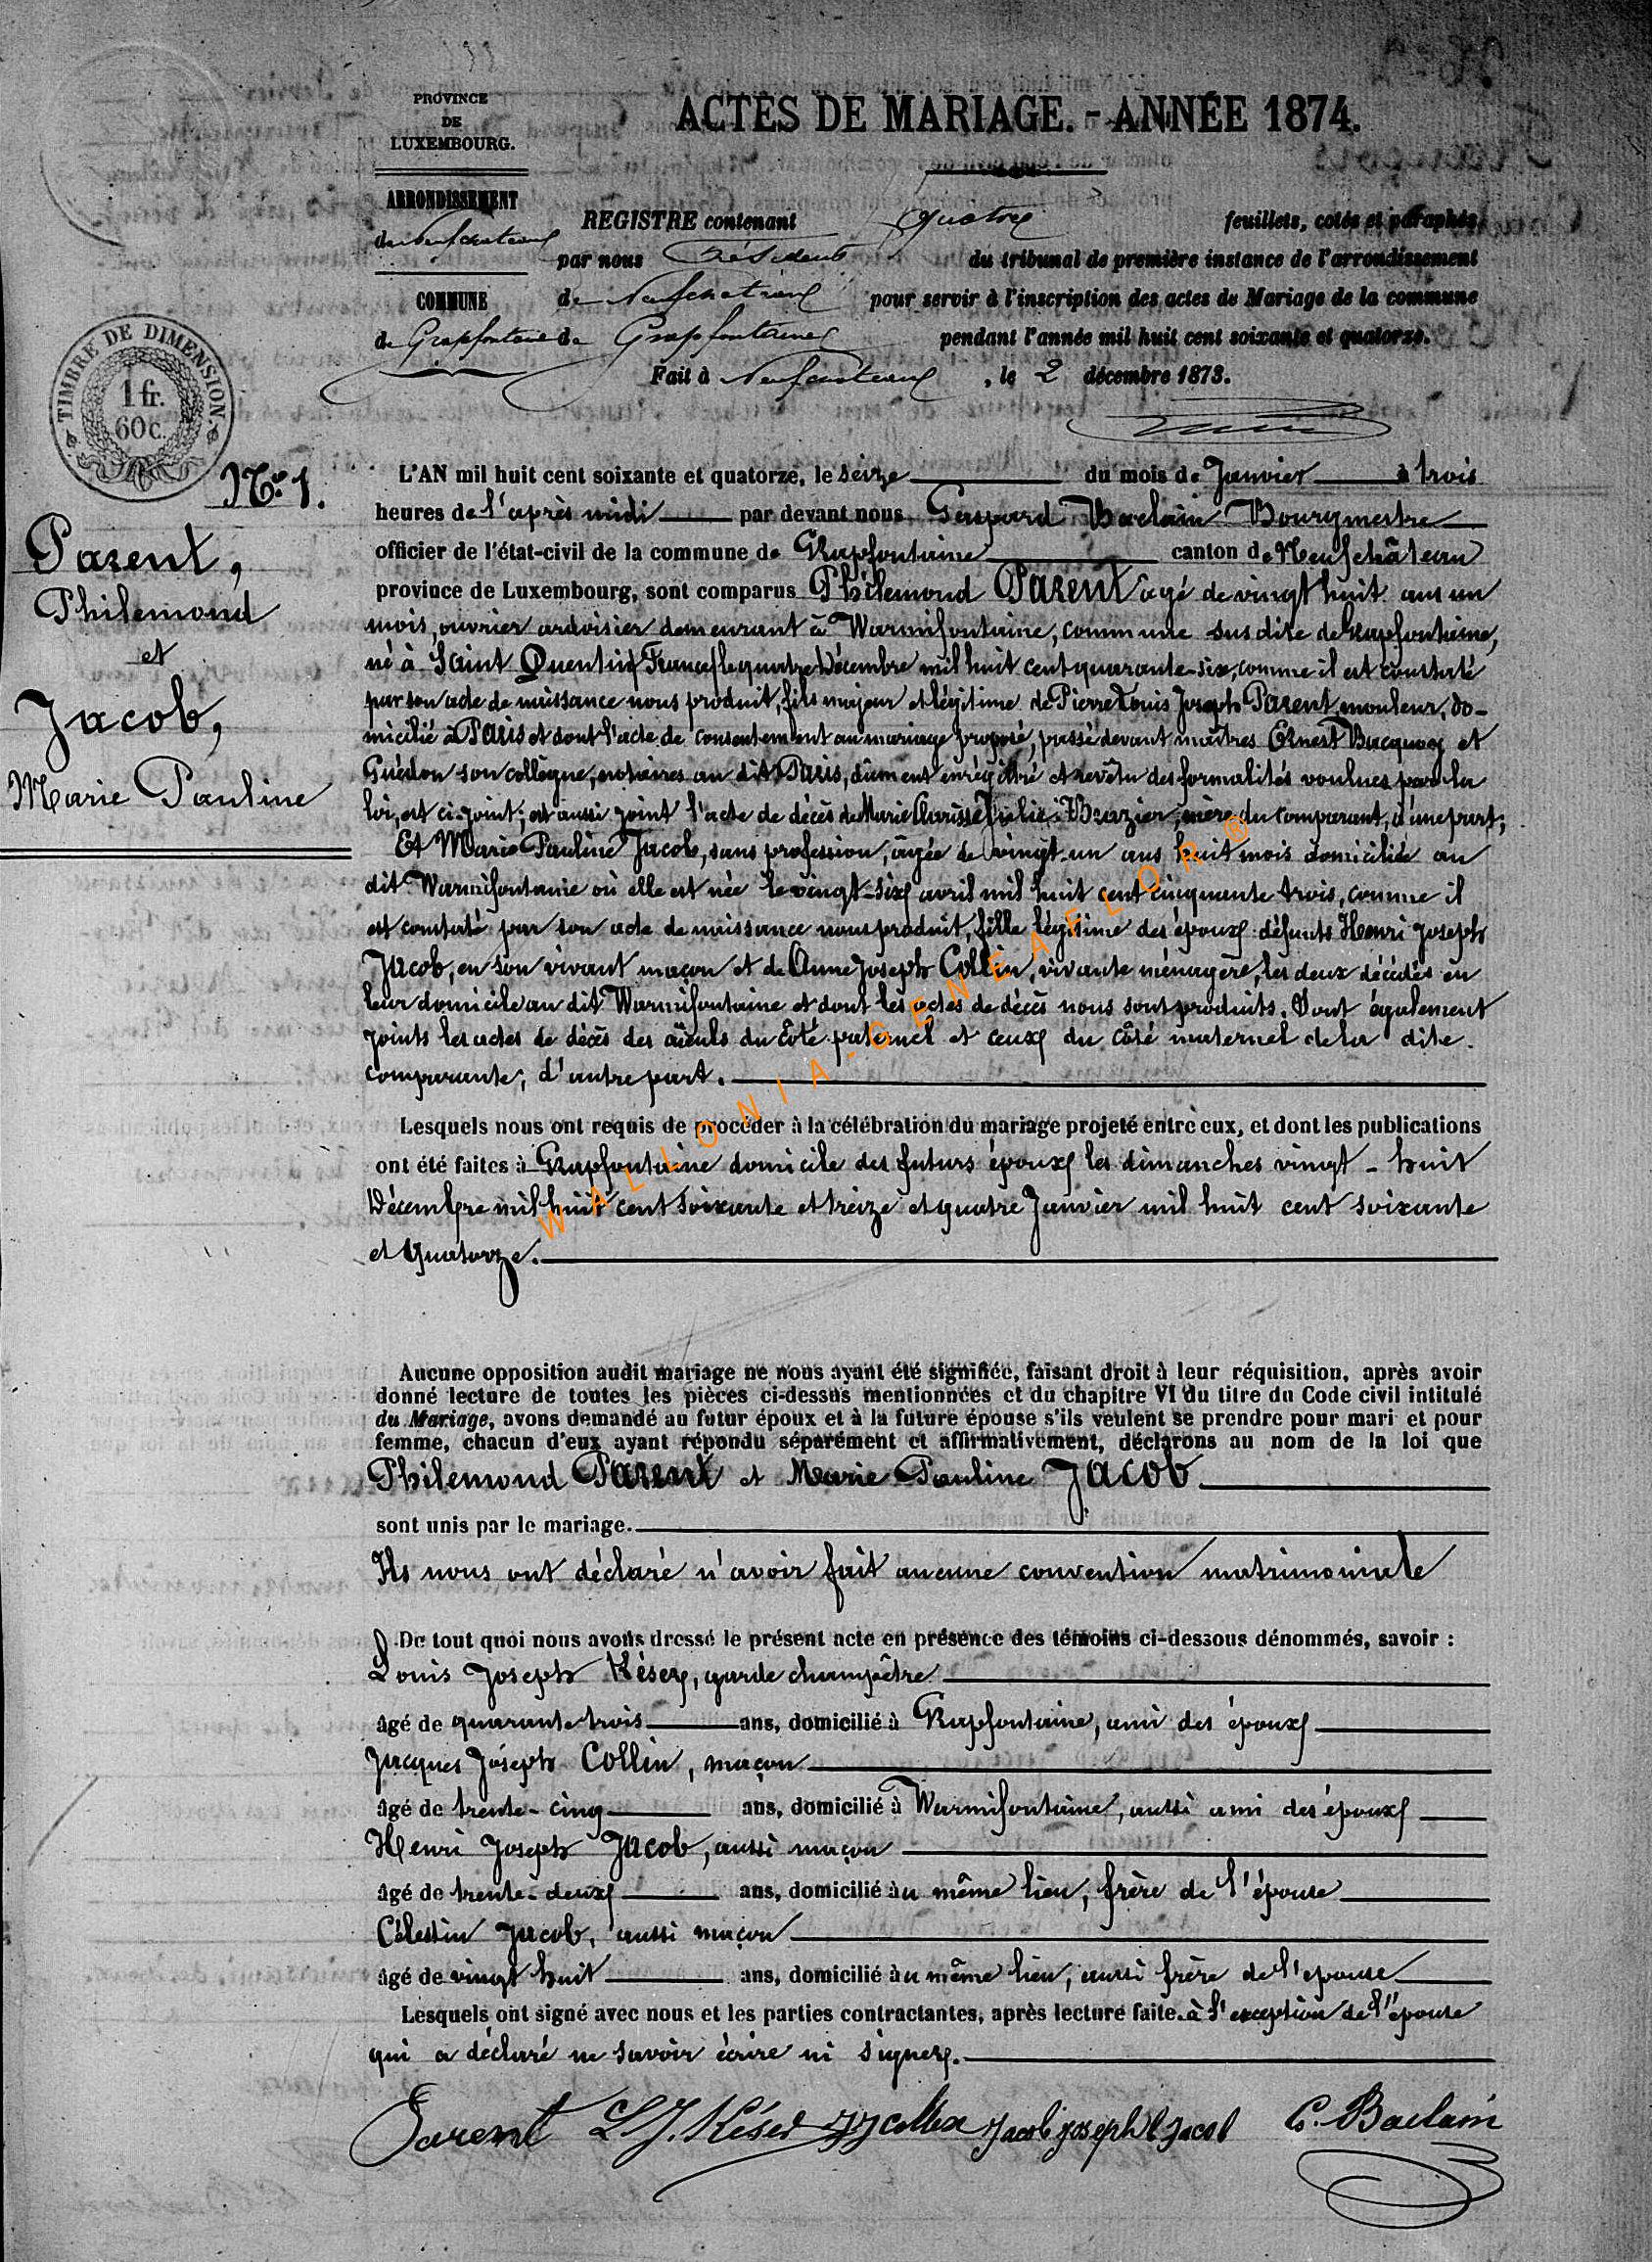 PROVINCE
DE
LUXEMBOURG.
ACTES DE MARIAGE. - ANNÉE 1874.
ARRONDISSEMENT
de Neufchateau
REGISTRE contenant quatre feuillets, cotés et paraphés
par nous Président du tribunal de première instance de l'arrondissement
COMMUNE
de Neufchateau pour servir à l'inscription des actes de Mariage de la commune
de Grapfontaine
de Grapfontaine pendant l'année mil huit cent soixante et quatorze.
Fait à Neufchateau, le 2 décembre 1873.
TIMBRE DE DIMENSION
1 fr.
60 c.
No. 1.
Parent,
Philemond
et
Jacob,
Marie Pauline
L'AN mil huit cent soixante et quatorze, le seize du mois de Janvier à trois
heures de l'après midi par devant nous Gaspard Baclain Bourgmestre
officier de l'état-civil de la commune de Grapfontaine canton de Neufchâteau
province de Luxembourg, sont comparus Philemond Parent âgé de vingt huit ans un
mois, ouvrier ardoisier demeurant à Warmifontaine, commune susdite de Grapfontaine,
né à Saint Quentin (France) le quatre Décembre mil huit cent quarante-six, comme il est constaté
par son acte de naissance nous produit, fils majeur et légitime de Pierre Louis Joseph Parent, mouleur, do-
micilié à Paris et dont l'acte de consentement au mariage proposé, passé devant maîtres Ernest Bacquoy et
Guédon son collègue, notaires au dit Paris, dûment enrégistré et revêtu des formalités voulues par la
loi, est ci-joint; est aussi joint l'acte de décès de Marie Clarisse Brazier, mère du comparant, d'une part;
Et Marie Pauline Jacob, sans profession, âgée de vingt-un ans huit mois domiciliée au
dit Warmifontaine où elle est née le vingt-six avril mil huit cent cinquante trois, comme il
est constaté par son acte de naissance nous produit, fille légitime des époux défunts Henri Joseph
Jacob, en son vivant maçon et de Anne Joseph Collin, vivante ménagère, les deux décédés en
leur domicile au dit Warmifontaine et dont les actes de décès nous sont produits. Sont également
joints les actes de décès des aïeuls du côté paternel et ceux du côté maternel de la dite
comparante, d'autre part.
Lesquels nous ont requis de procéder à la célébration du mariage projeté entre eux, et dont les publications
ont été faites à Grapfontaine domicile des futurs époux les dimanches vingt-huit
Décembre mil huit cent soixante et treize et quatre Janvier mil huit cent soixante
et quatorze.
WALLONIA-GENEAFLOR®
Aucune opposition audit mariage ne nous ayant été signifiée, faisant droit à leur réquisition, après avoir
donné lecture de toutes les pièces ci-dessus mentionnées et du chapitre VI du titre du Code civil intitulé
du Mariage, avons demandé au futur époux et à la future épouse s'ils veulent se prendre pour mari et pour
femme, chacun d'eux ayant répondu séparément et affirmativement, déclarons au nom de la loi que
Philemond Parent et Marie Pauline Jacob
sont unis par le mariage.
Ils nous ont déclaré n'avoir fait aucune convention matrimoniale
De tout quoi nous avons dressé le présent acte en présence des témoins ci-dessous dénommés, savoir :
Louis Joseph Késer, garde champêtre
âgé de quarante trois ans, domicilié à Grapfontaine, ami des époux
Jacques Joseph Collin, maçon
âgé de trente-cinq ans, domicilié à Warmifontaine, aussi ami des époux
Henri Joseph Jacob, aussi maçon
âgé de trente-deux ans, domicilié au même lieu, frère de l'épouse
Célestin Jacob, aussi maçon
âgé de vingt huit ans, domicilié au même lieu, aussi frère de l'épouse
Lesquels ont signé avec nous et les parties contractantes, après lecture faite. à l'exception de l'épouse
qui a déclaré ne savoir écrire ni signer.
Parent L J. Késer JJ Collin Jacob joseph C Jacob G. Baclain